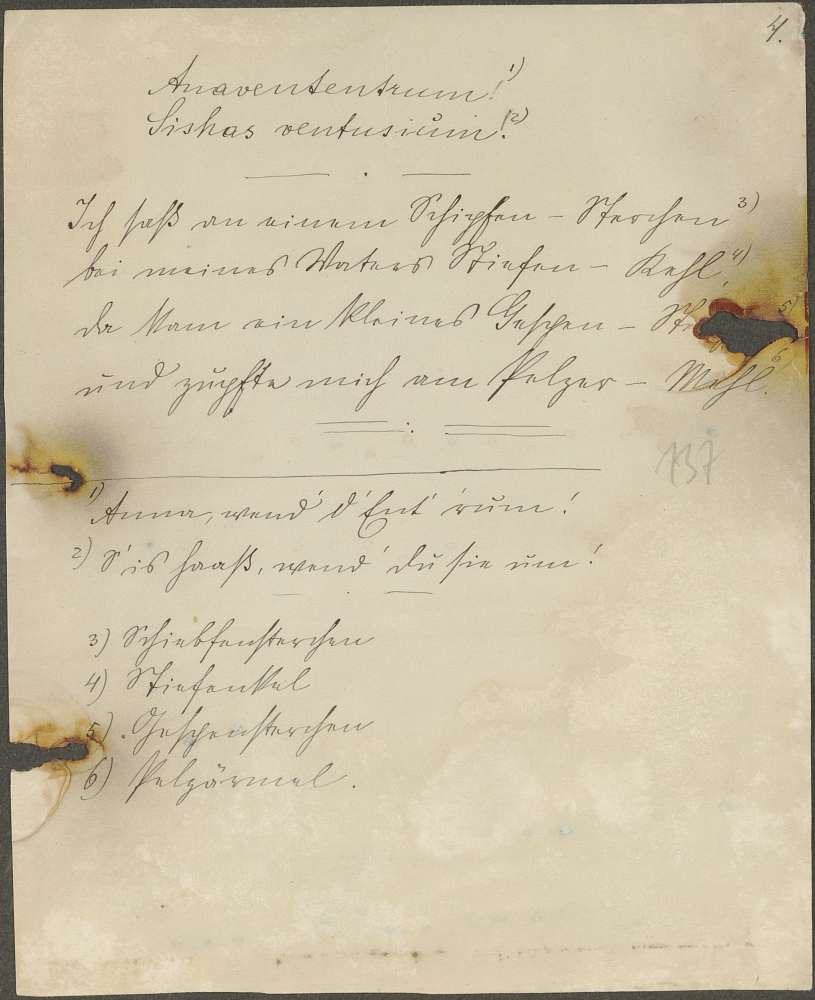 4.
Anavententrum! 1)
Sishas ventusium! 2)
Ich saß an einem Schipfen – Sterchen 3)
bei meines Vaters Stiefen – Kehl, 4)
da kam ein kleines Gespen – 5)
und zupfte mich am Pelzer – Mehl. 6
137
1) Anna, wend' d' Ent' 'rum!
2) S'is haaß, wend' du sie um!
3) Schiebfensterchen
4) Stiefenkel
5). Gespensterchen
6) Pelzärmel.